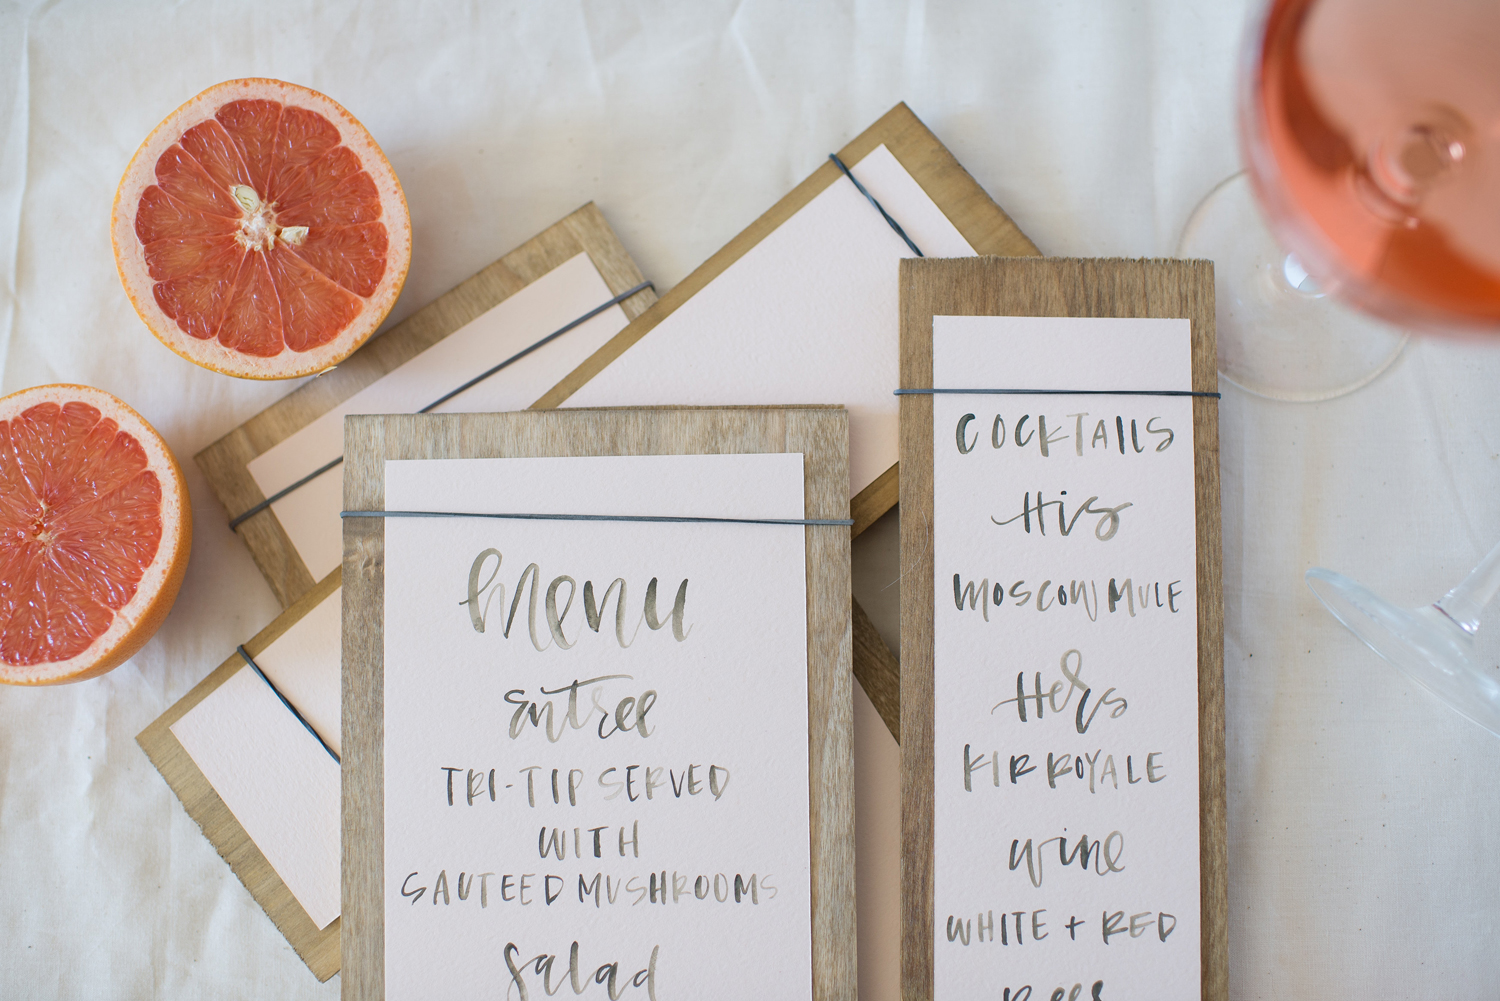 menu
Entree
TRI-TIP SERVED
WITH
SAUTEED MUSHROOMS
Salad
COCKTAILS
His
MOSCOW MULE
Hers
KIR ROYALE
wine
WHITE + RED